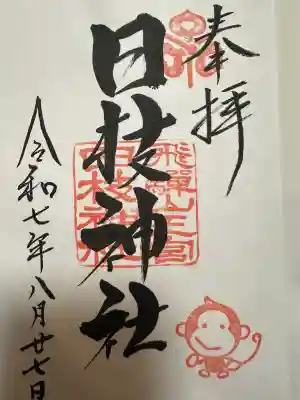 奉拝
日枝神社
飛騨山王宮
日枝神社
令和七年八月廿七日